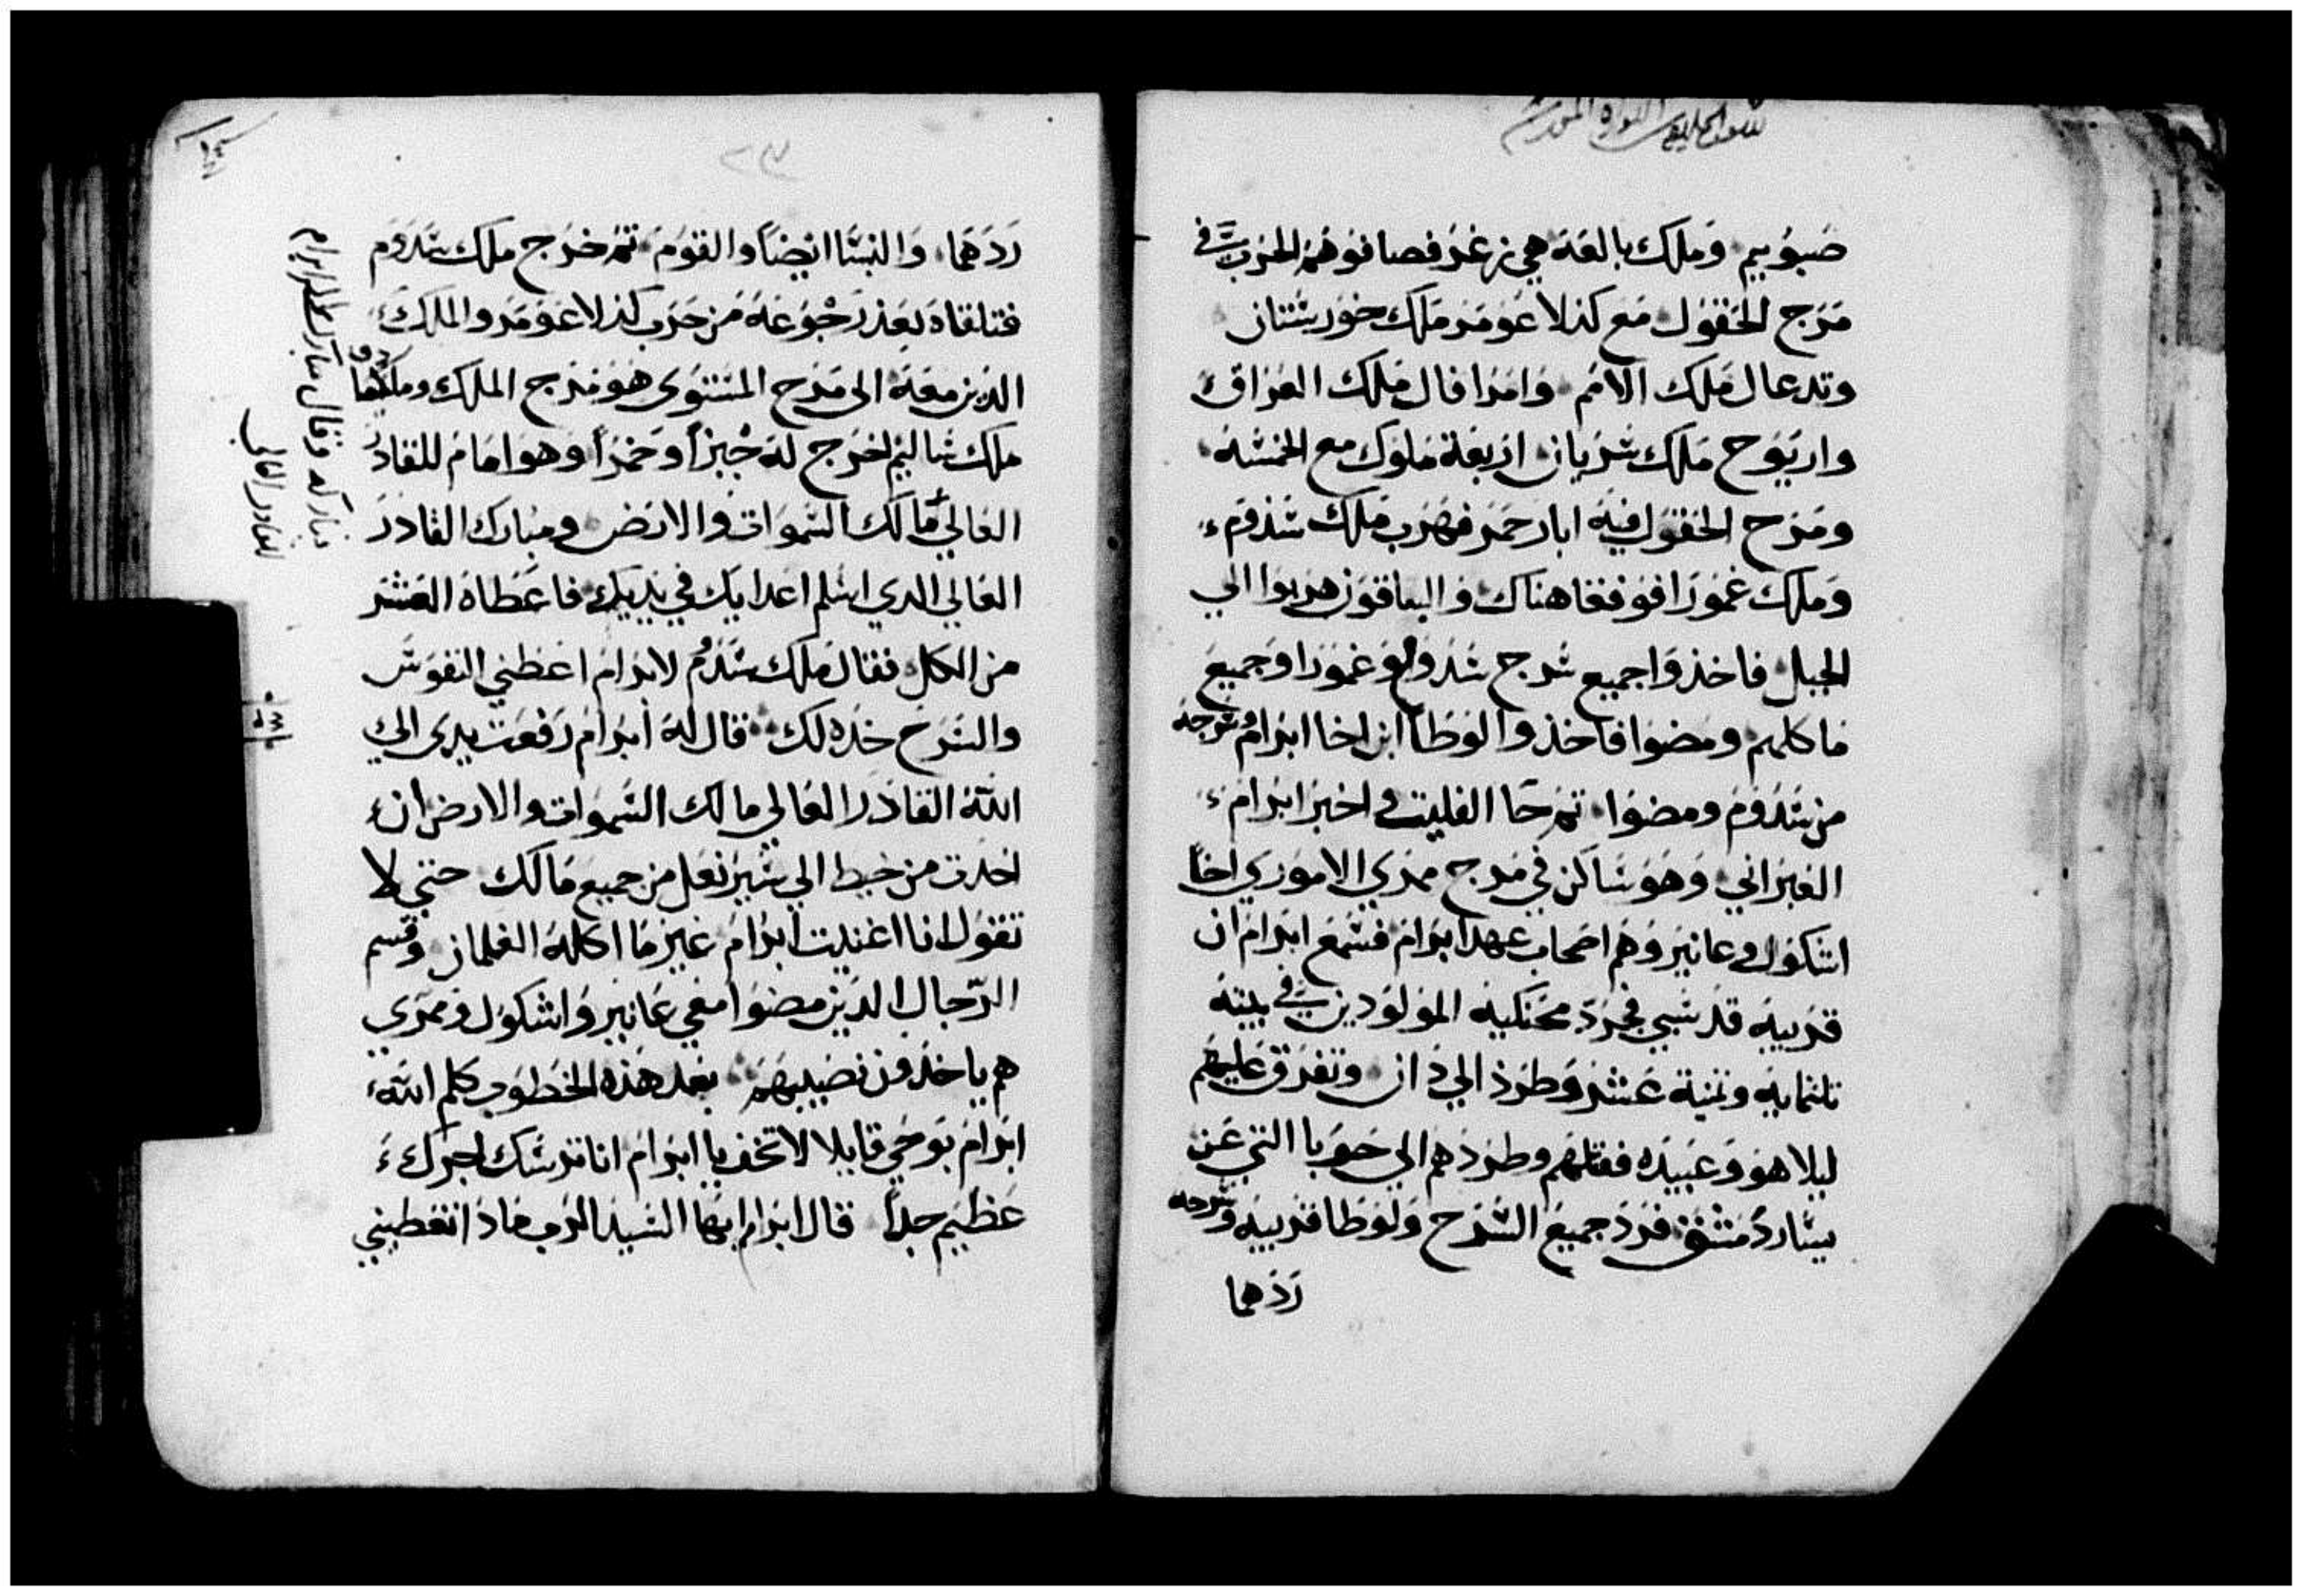 صبوييم وملك بالعة هي زغر فصافوهم الحرب في
مرج الحقول مع كدلاعومر ملك خورستان
وتدعال ملك الامم وامرافال ملك العراق
واريوح ملك شريان اربعة ملوك مع الخمسة
ومرج الحقول فيه ابار حمر فهرب ملك سدوم
وملك غمورا فوقعا هناك والباقون هربوا الي
الجبل فاخذوا جميع سرح سدوم وغمورا وجميع
ماكلهم ومضوا فاخذوا لوطا ابن اخا ابرام وسرحه
من سدوم ومضوا ثم جا الفليت واخبر ابرام
العبراني وهو ساكن في مرج ممري الاموري اخا
اشكول وعانير وهم اصحاب عهد ابرام فسمع ابرام ان
قريبه قد سبي فجرد محنكيه المولودين في بيته
تلتمايه وتمنية عشر وطرد الي دان وتفرق عليهم
ليلا هو وعبيده فقتلهم وطردهم الي حوبا التي عن
يسار دمشق فرد جميع السرح ولوطا قريبه وسرحه
ردهما
ردهما والنسا ايضا والقوم ثم خرج ملك سدوم
فتلقاه بعد رجوعه من حرب كدلاعومر والملك
الذين معه الى مرج المستوى هو مرج الملك وملكيما
ملك شاليم اخرج له خبزا وخمرا وهو امام للقادر
العالي مالك السموات والارض ومبارك القادر
العالي الدي اسلم اعدايك في يديك فاعطاه العشر
من الكل فقال ملك سدوم لابرام اعطني النفوس
والسرح خده لك قال له ابرام رفعت يدي الي
الله القادر العالي مالك السموات والارض ان
اخدت من خيط الي سير نعل من جميع مالك حتي لا
تقول انا اغنيت ابرام غير ما اكله الغلمان وقسم
الرجال الدين مضوا معي عانير واشكول وممري
هم ياخدون نصيبهم بعد هذه الخطوب كلم الله
ابرام بوحي قايلا لا تخف يا ابرام انا ترسك اجرك
عظيم جدا قال ابرام ايها السيد الرب ماذا تعطيني
وباركه وقال مبارك
القادر العالي